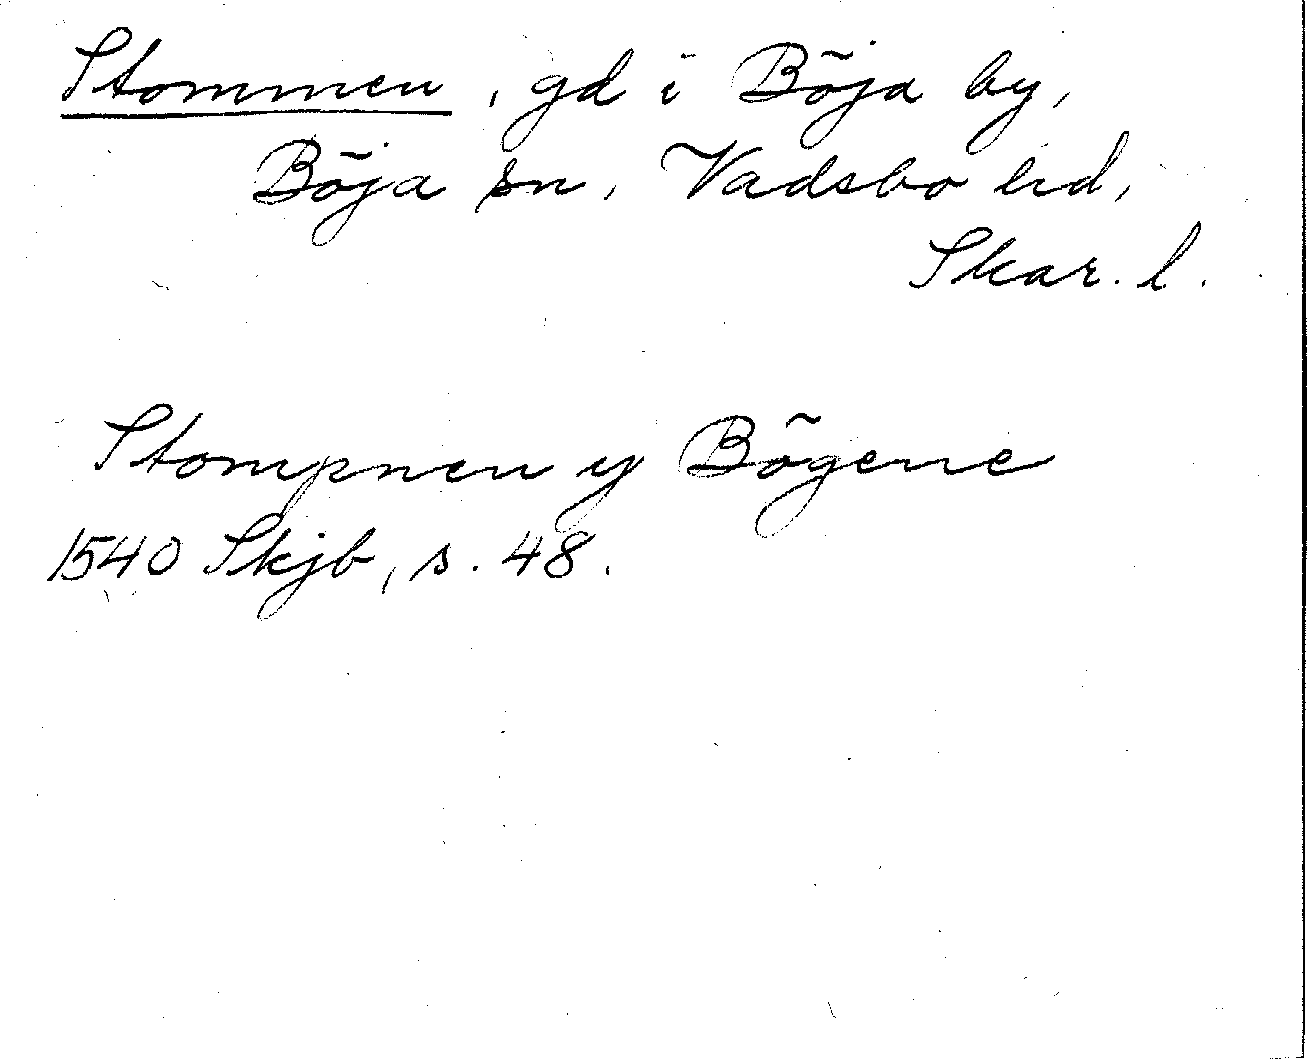 Stommen, gd i Böja by,
Böja sn, Vadsbo hd,
Skar. l.
Stompnen y Bögene
1540 Skjb, s. 48.